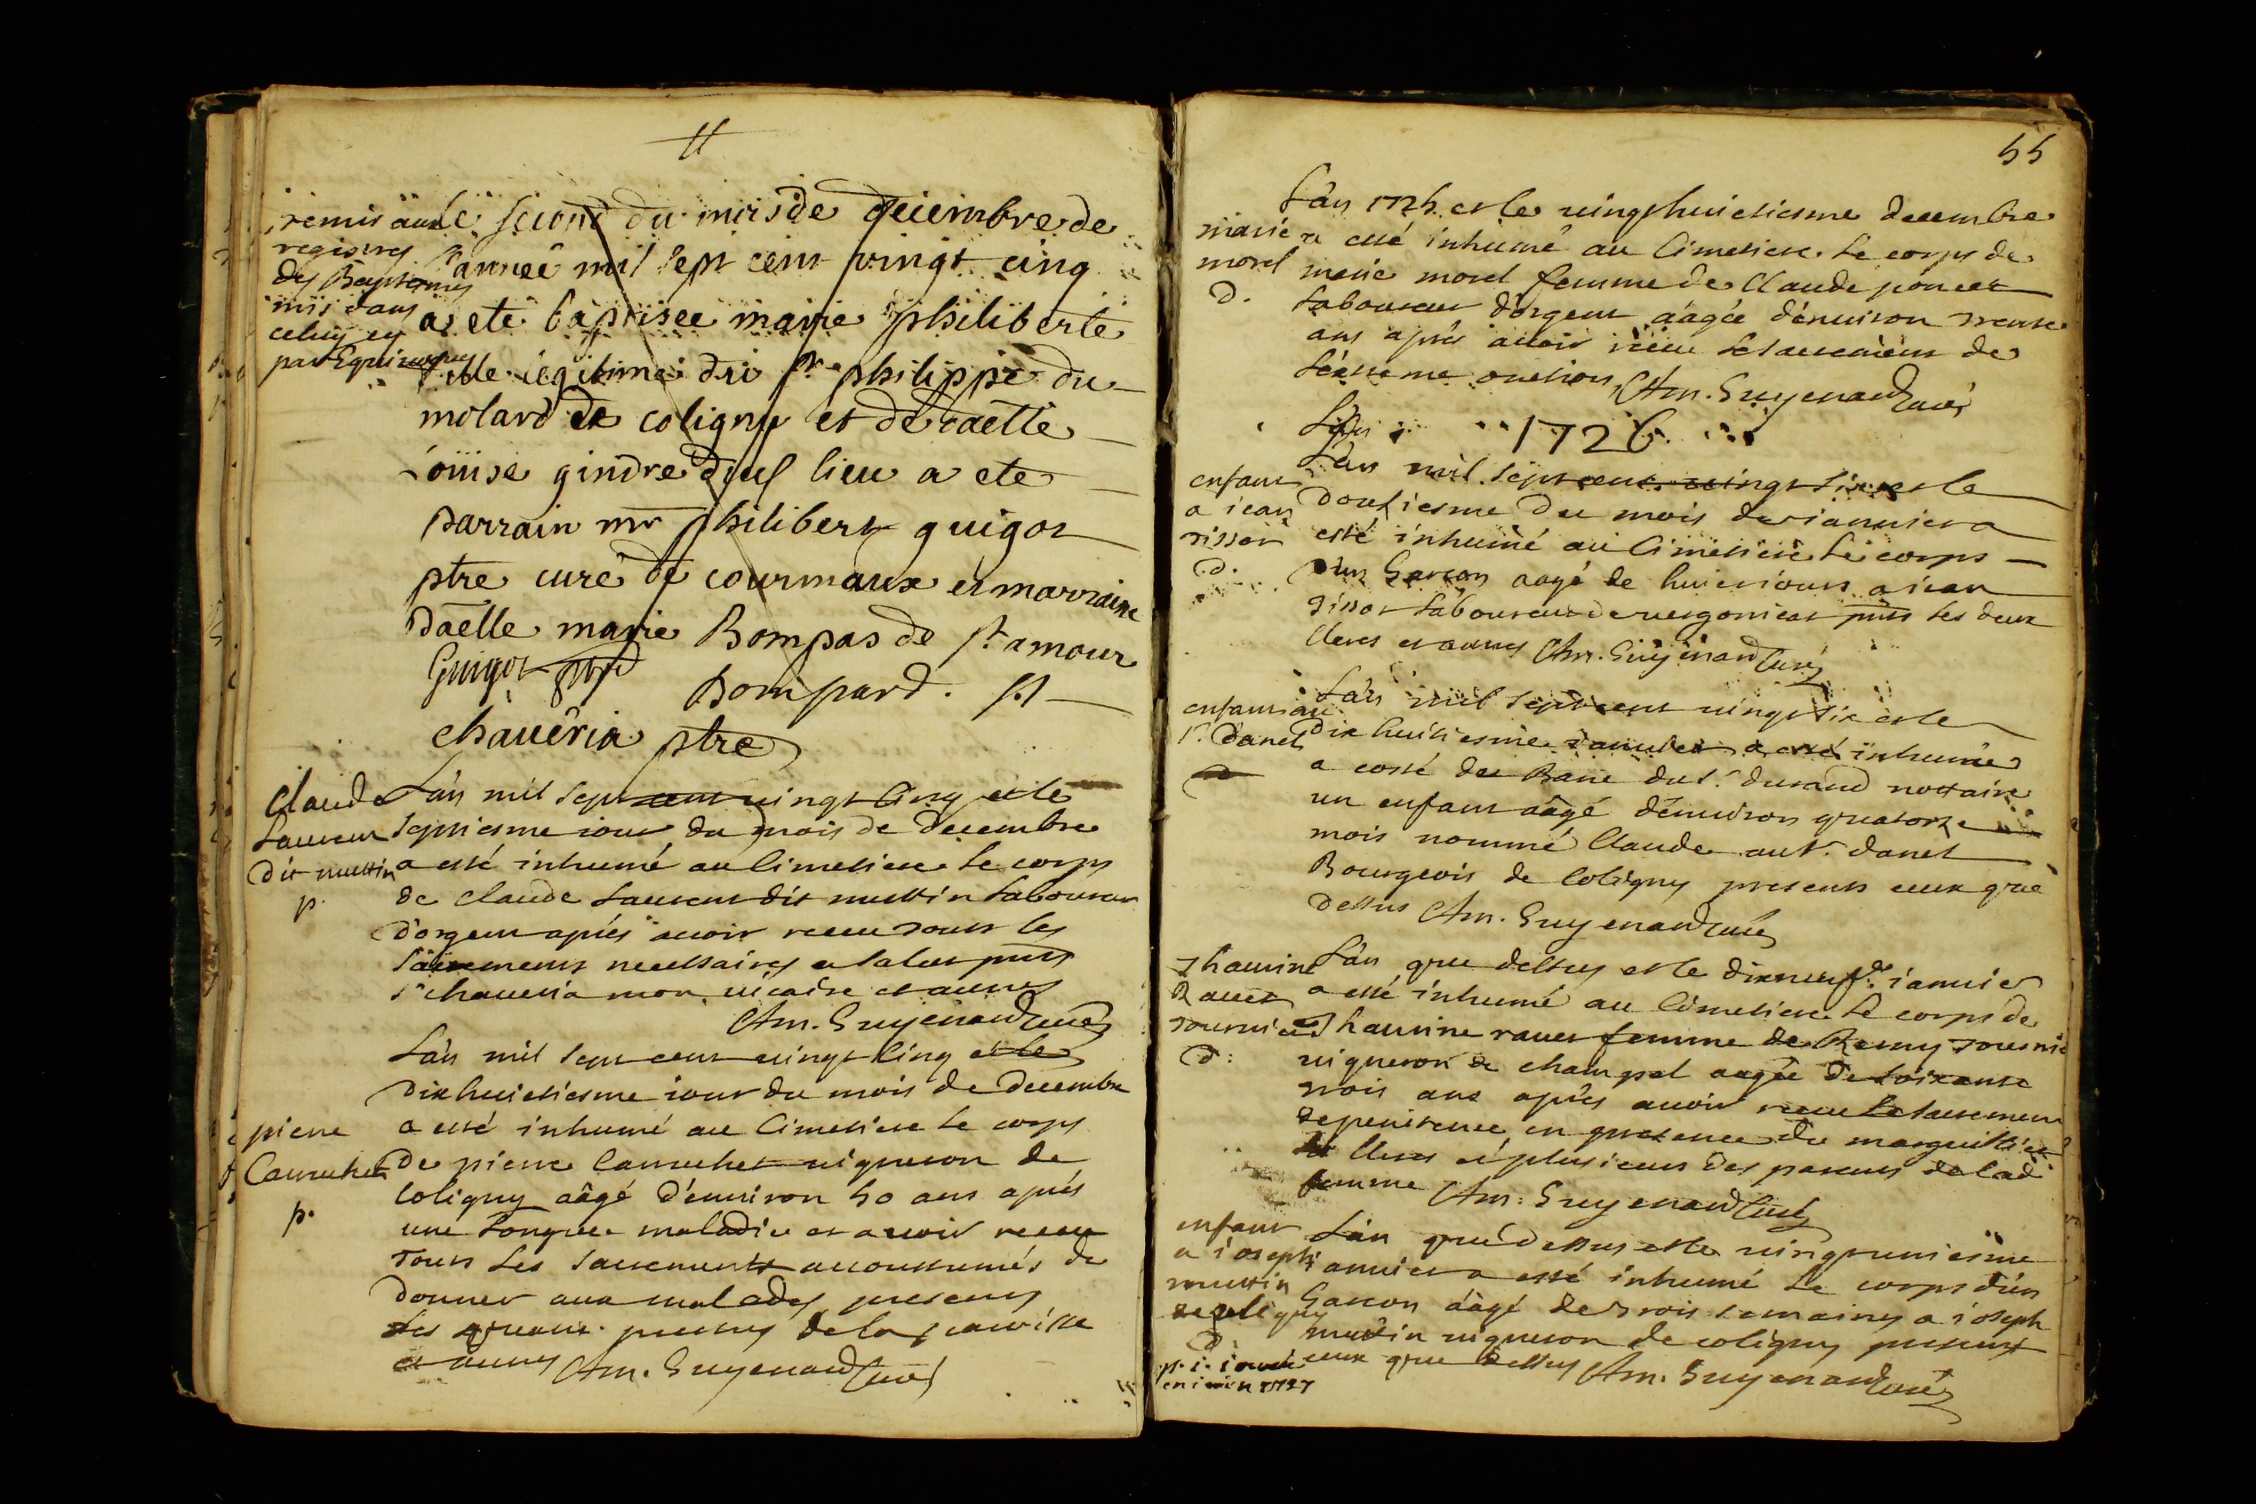 remis aux
registres
des Baptemes
mis dans
celuy cy
par Equivoque
le second du mois de decembre de
l'année mil sept cent vingt cinq
a eté baptisée marie philiberte
fille légitime du sr philippe du
molard de coligny et de daelle
loüise gindre dud lieu a ete
parrain mr philibert guigot
ptre curé de courmaux et marraine
daelle marie Bompas de st amour
Guigot ptre
Bompard. st
chaueria ptre
Claude
Laurent
dit muttin
p.
L'an mil sept cent uingt cinq et le
septiesme iour du mois de decembre
a esté inhumé au cimetiere le corps
de claude Laurent dit muttin laboureur
d'orgeut aprés auoir receu tous les
sacrements necessaires a salut pnts
sr chaueria mon uicaire et autres
Am. Guyenard curé
pierre
Cauuchet
p.
L'an mil sept cent uingt cinq et le
dix huictiesme iour du mois de decembre
a esté inhumé au cimetiere le corps
de pierre Cauuchet uigneron de
coligny aâgé d'enuiron 50 ans aprés
une longue maladie et auoir receu
tous les sacrements accoustumés de
donner aux malades presents
les prestres de la parroisse
et autres Am. Guyenard curé
55
marie
morel
d.
L'an 1725 et le uingt huictiesme decembre
a esté inhumé au cimetiere le corps de
marie morel femme de Claude poncet
laboureur d'orgeut aâgée d'enuiron trente
ans aprés auoir receu le sacrement de
l'extreme onction Am. Guyenard curé
L'an 1726
enfant
a iean
tissot
d.
L'an mil sept cent uingt six et le
douziesme du mois de ianuier a
esté inhumé au cimetiere le corps
d'un Garcon aagé de huict iours a iean
tissot laboureur de uergongeat pnts les deux
clercs et autres Am. Guyenard curé
enfant au
sr. danet
d
L'an mil sept cent uingt six et le
dix huictiesme ianuier a esté inhumé
a costé du Banc du sr. durand nottaire
un enfant aâgé d'enuiron quatorze
mois nommé Claude au sr. danet
Bourgeois de coligny presents ceux que
dessus Am. Guyenard curé
Thauine
Rauet
tournier
d:
L'an que dessus et le dixneuf de. ianuier
a esté inhumé au cimetiere le corps de
Thauine rauet femme de Remy tournier
uigneron de champel aagée de soixante
trois ans aprés auoir receu le sacrement
de penitence en presence du marguillier
clercs et plusieurs des parents de lad
femme Am. Guyenard curé
enfant
a ioseph
muttin
de coligny
d.
L'an que dessus et le uingtuniesme
ianuier a esté inhumé le corps d'un
Garcon aâgé de trois semaines a ioseph
muttin uigneron de coligny presents
ceux que dessus Am. Guyenard curé
en iuin 1727